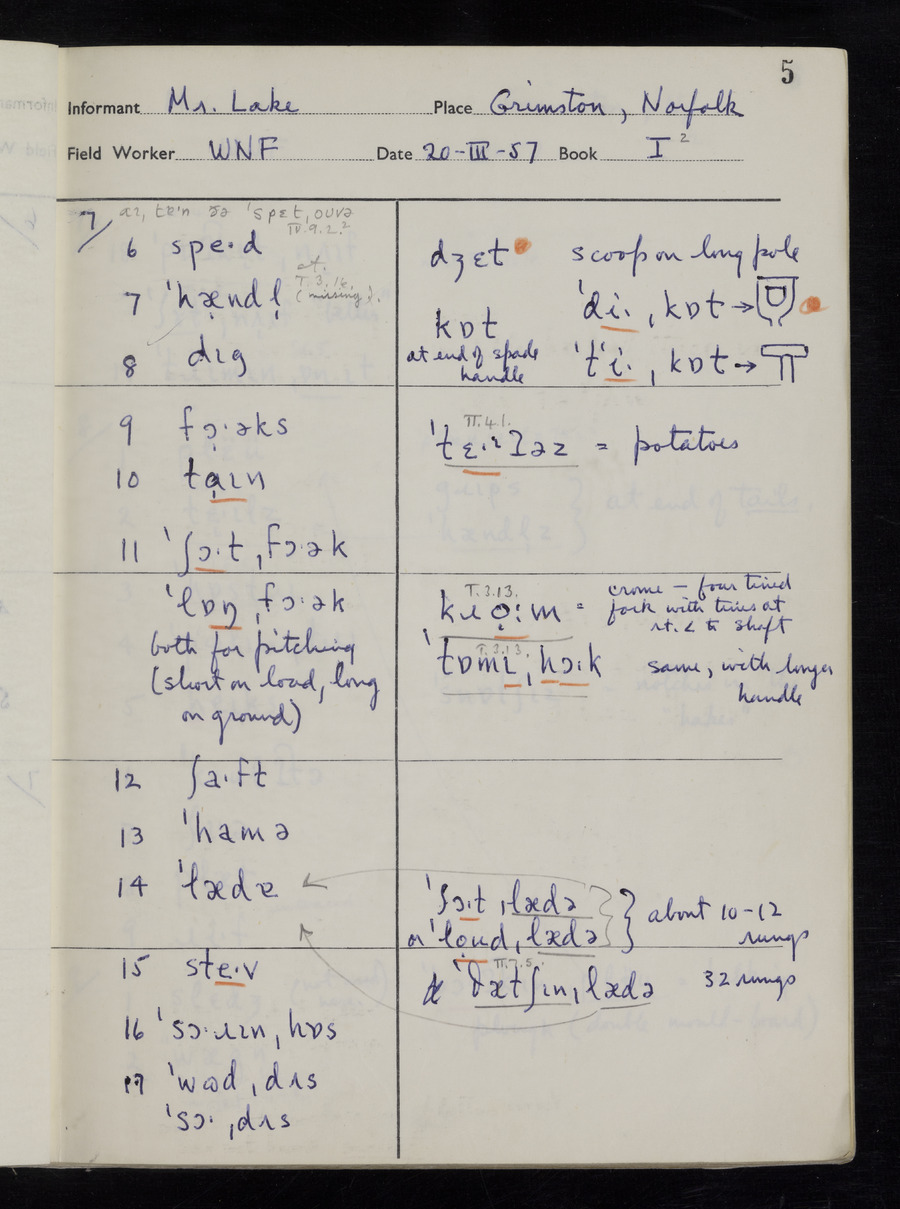 5
Informant Mr. Lake Place Grimston, Norfolk
Field Worker WNF Date 20-III-57 Book I 2
7/
IV.9.2.2
6 speˑd
7 ˈhændl̩
T.3.16.
(missing).
8 dɪɡ
dʒɛt scoop on long pole
kɒt
at end of spade
handle
ˈdiˑ ˌkɒt →
ˈtʼiˑ ˌkɒt →
9 fɔ̣ˑəks
10 tạɪn
11 ˈʃɔˑt ˌfɔˑək
II.4.1.
= potatoes
ˈlɒŋ ˌfɔˑək
both for pitching
(short on load, long
on ground)
T.3.13.
kɹọːm = crome – four tined
fork with tines at
rt. ∠ to shaft
T.3.13.
ˈtɒmɪ ˌhɔːk same, with longer
handle
12 ʃaˑft
13 ˈhamə
14 ˈlædə
ˈʃɔˑt ˌlædə
or ˈloud ˌlædə } about 10-12
rungs
15 steˑv
III.7.5.
ˈðætʃɪn ˌlædə 32 rungs
16 ˈsɔˑɹɪn ˌhɒs
17 ˈwʊd ˌdʌs
ˈsɔˑ ˌdʌs